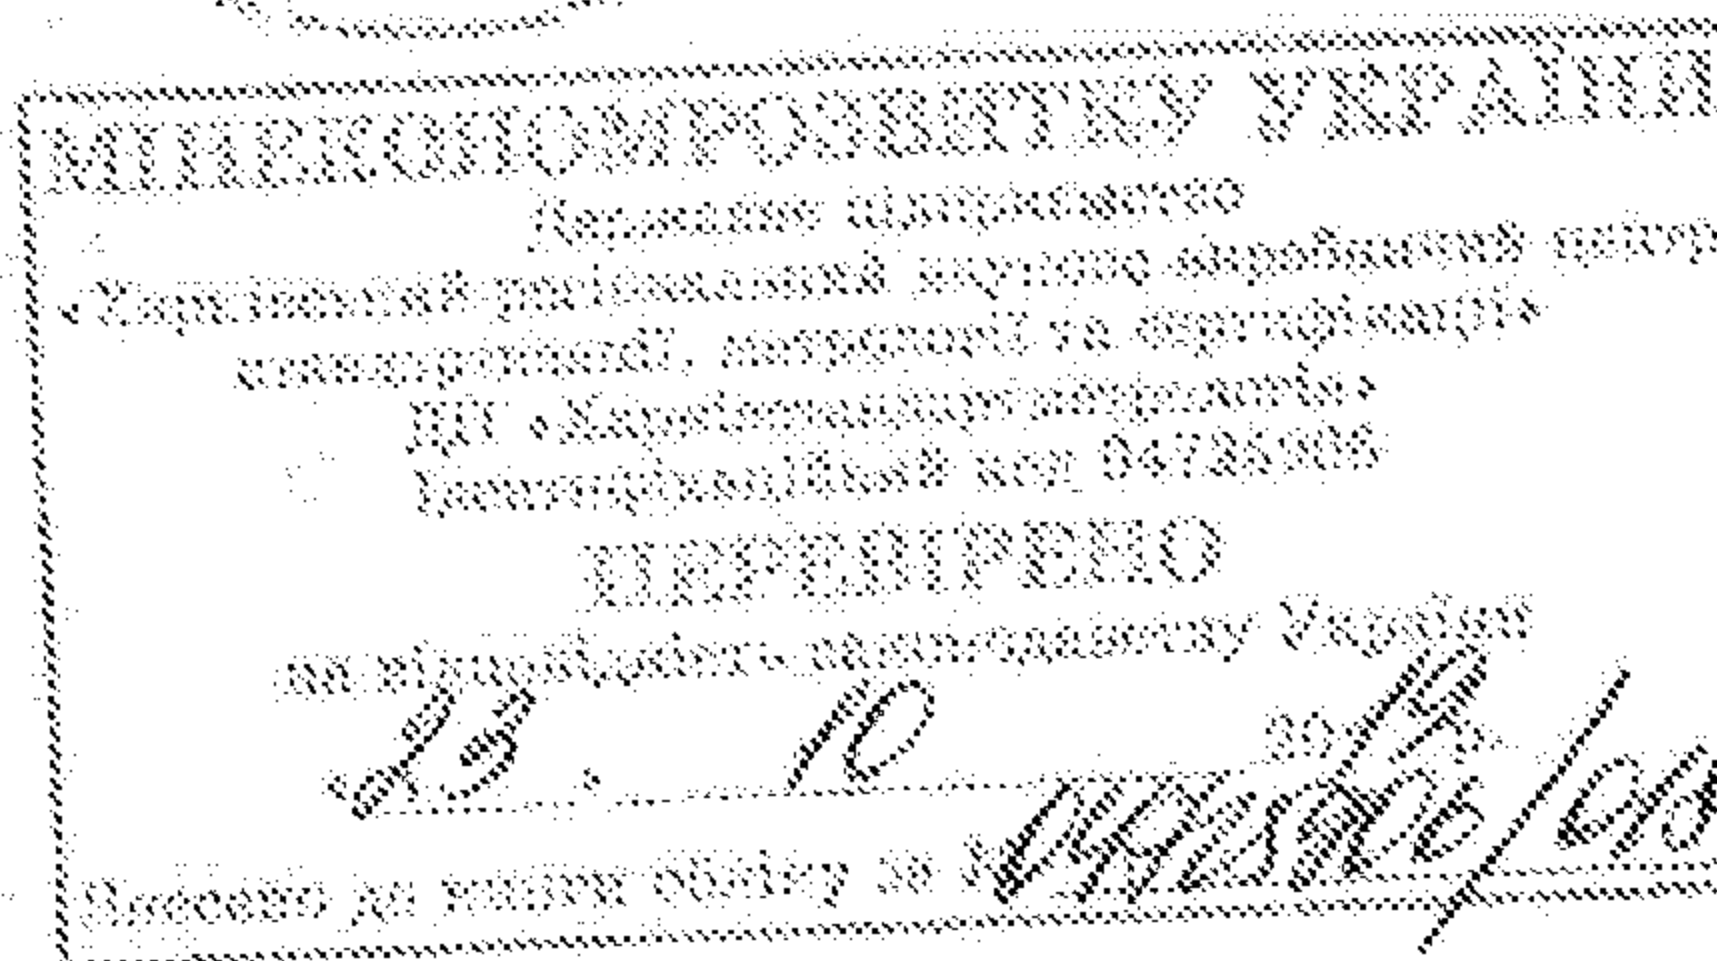 МІНЕКОНОМРОЗВИТКУ УКРАЇНИ
Державне підприємство
«Харківський регіональний науково-виробничий центр
стандартизації, метрології та сертифікації»
ДП «Харківстандартметрологія»
Ідентифікаційний код 04725906
ПЕРЕВІРЕНО
на відповідність законодавству України
23. 10 20 19 р.
Внесено до книги обліку за №